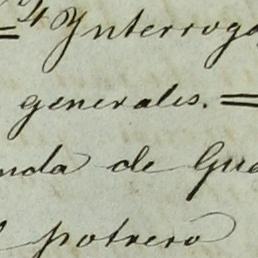 4 Interroga
generales. =
nda de Gua
potrero